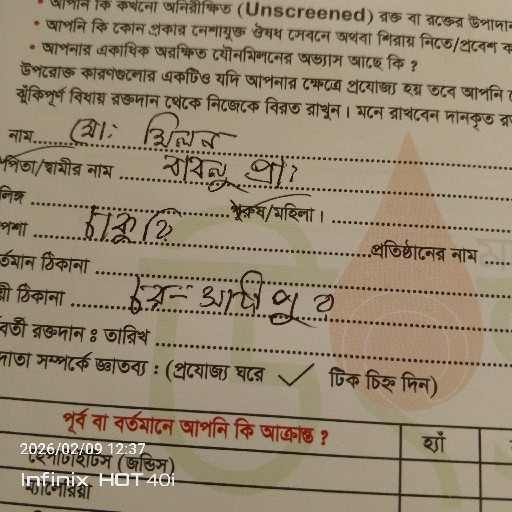 আপনি কি কখনো অনিরীক্ষিত (Unscreened) রক্ত বা রক্তের উপাদান
• আপনি কি কোন প্রকার নেশাযুক্ত ঔষধ সেবনে অথবা শিরায় নিতে/প্রবেশ ক
• আপনার একাধিক অরক্ষিত যৌনমিলনের অভ্যাস আছে কি ?
উপরোক্ত কারণগুলোর একটিও যদি আপনার ক্ষেত্রে প্রযোজ্য হয় তবে আপনি
ঝুঁকিপূর্ণ বিধায় রক্তদান থেকে নিজেকে বিরত রাখুন। মনে রাখবেন দানকৃত
নাম মো: মিলন
পিতা/স্বামীর নাম বাবলু প্রাং
লিঙ্গ পুরুষ/মহিলা।
পেশা চাকুরি প্রতিষ্ঠানের নাম
র্তমান ঠিকানা
য়ী ঠিকানা চর-আশীপুর
বর্তী রক্তদান : তারিখ
দাতা সম্পর্কে জ্ঞাতব্য : (প্রযোজ্য ঘরে ✓ টিক চিহ্ন দিন)
পূর্ব বা বর্তমানে আপনি কি আক্রান্ত ? হ্যাঁ
হেপাটাইটিস (জন্ডিস)
ম্যালেরিয়া
2026/02/09 12:37
Infinix HOT 40i